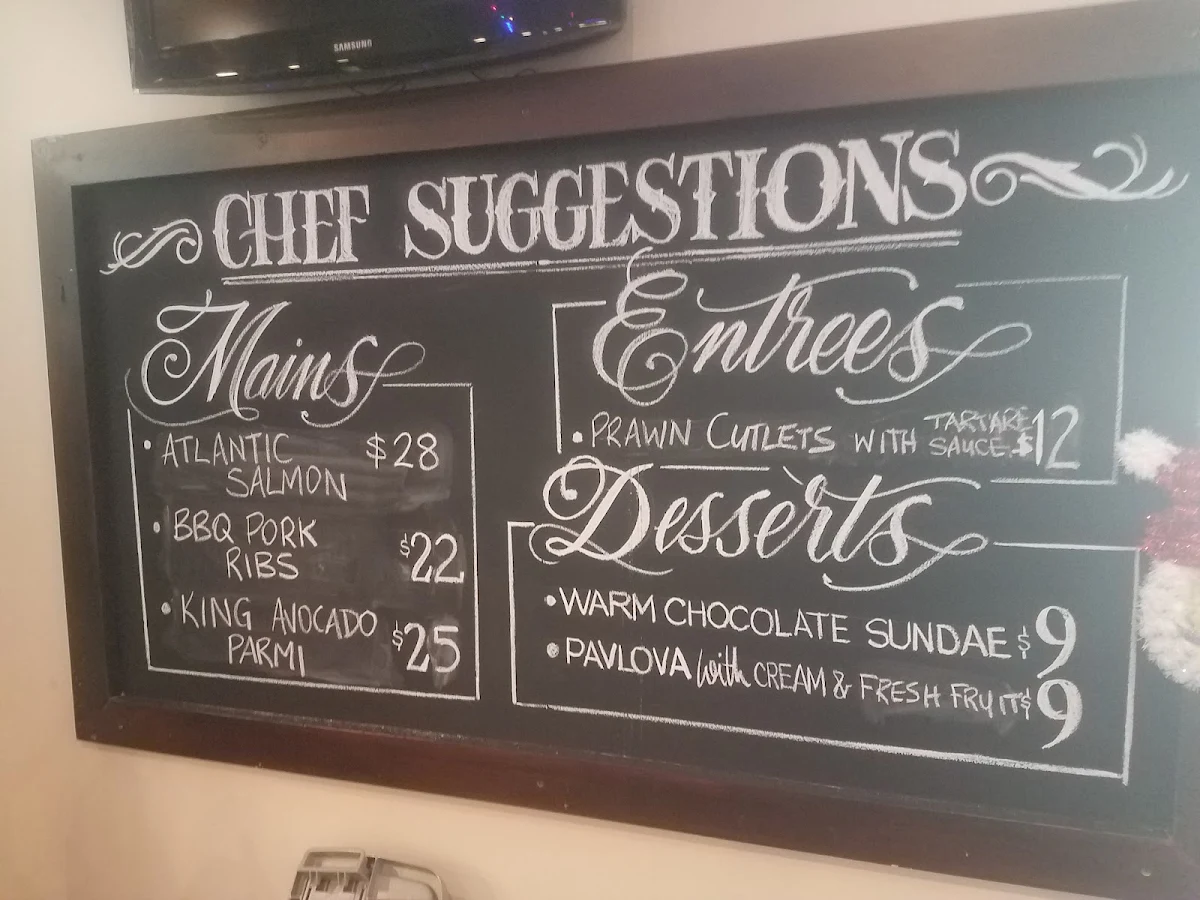 SAMSUNG
CHEF SUGGESTIONS
Mains
• ATLANTIC $28
SALMON
• BBQ PORK
RIBS $22
• KING AVOCADO
PARMI $25
Entrees
• PRAWN CUTLETS WITH TARTARE SAUCE $12
Desserts
• WARM CHOCOLATE SUNDAE $9
• PAVLOVA with CREAM & FRESH FRUIT $9